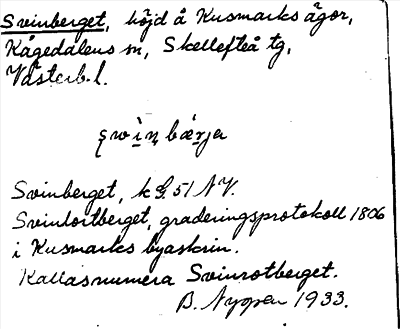 Svinberget, höjd å Kusmarks ägor,
Kågedalens sn, Skellefteå tg,
Västerb. l.
Svinberget, k 51 NV.
Svinlortberget, graderingsprotokoll 1806
i Kusmarks byaskrin.
Kallas numera Svinrotberget.
B. 1933.